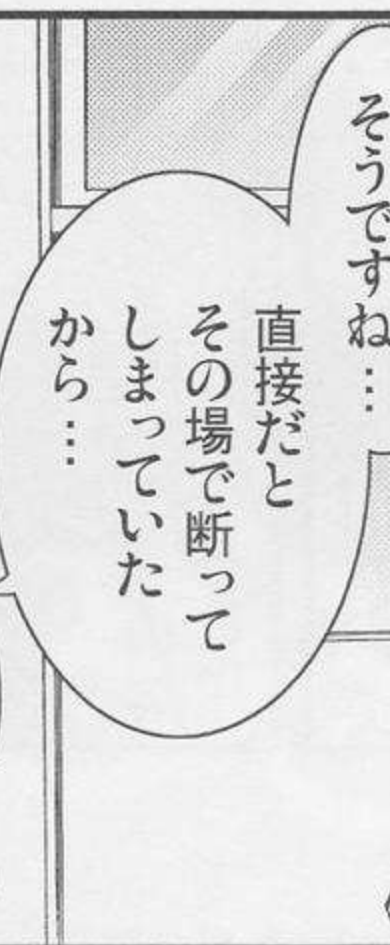 そうですね…
直接だと
その場で断って
しまっていた
から…